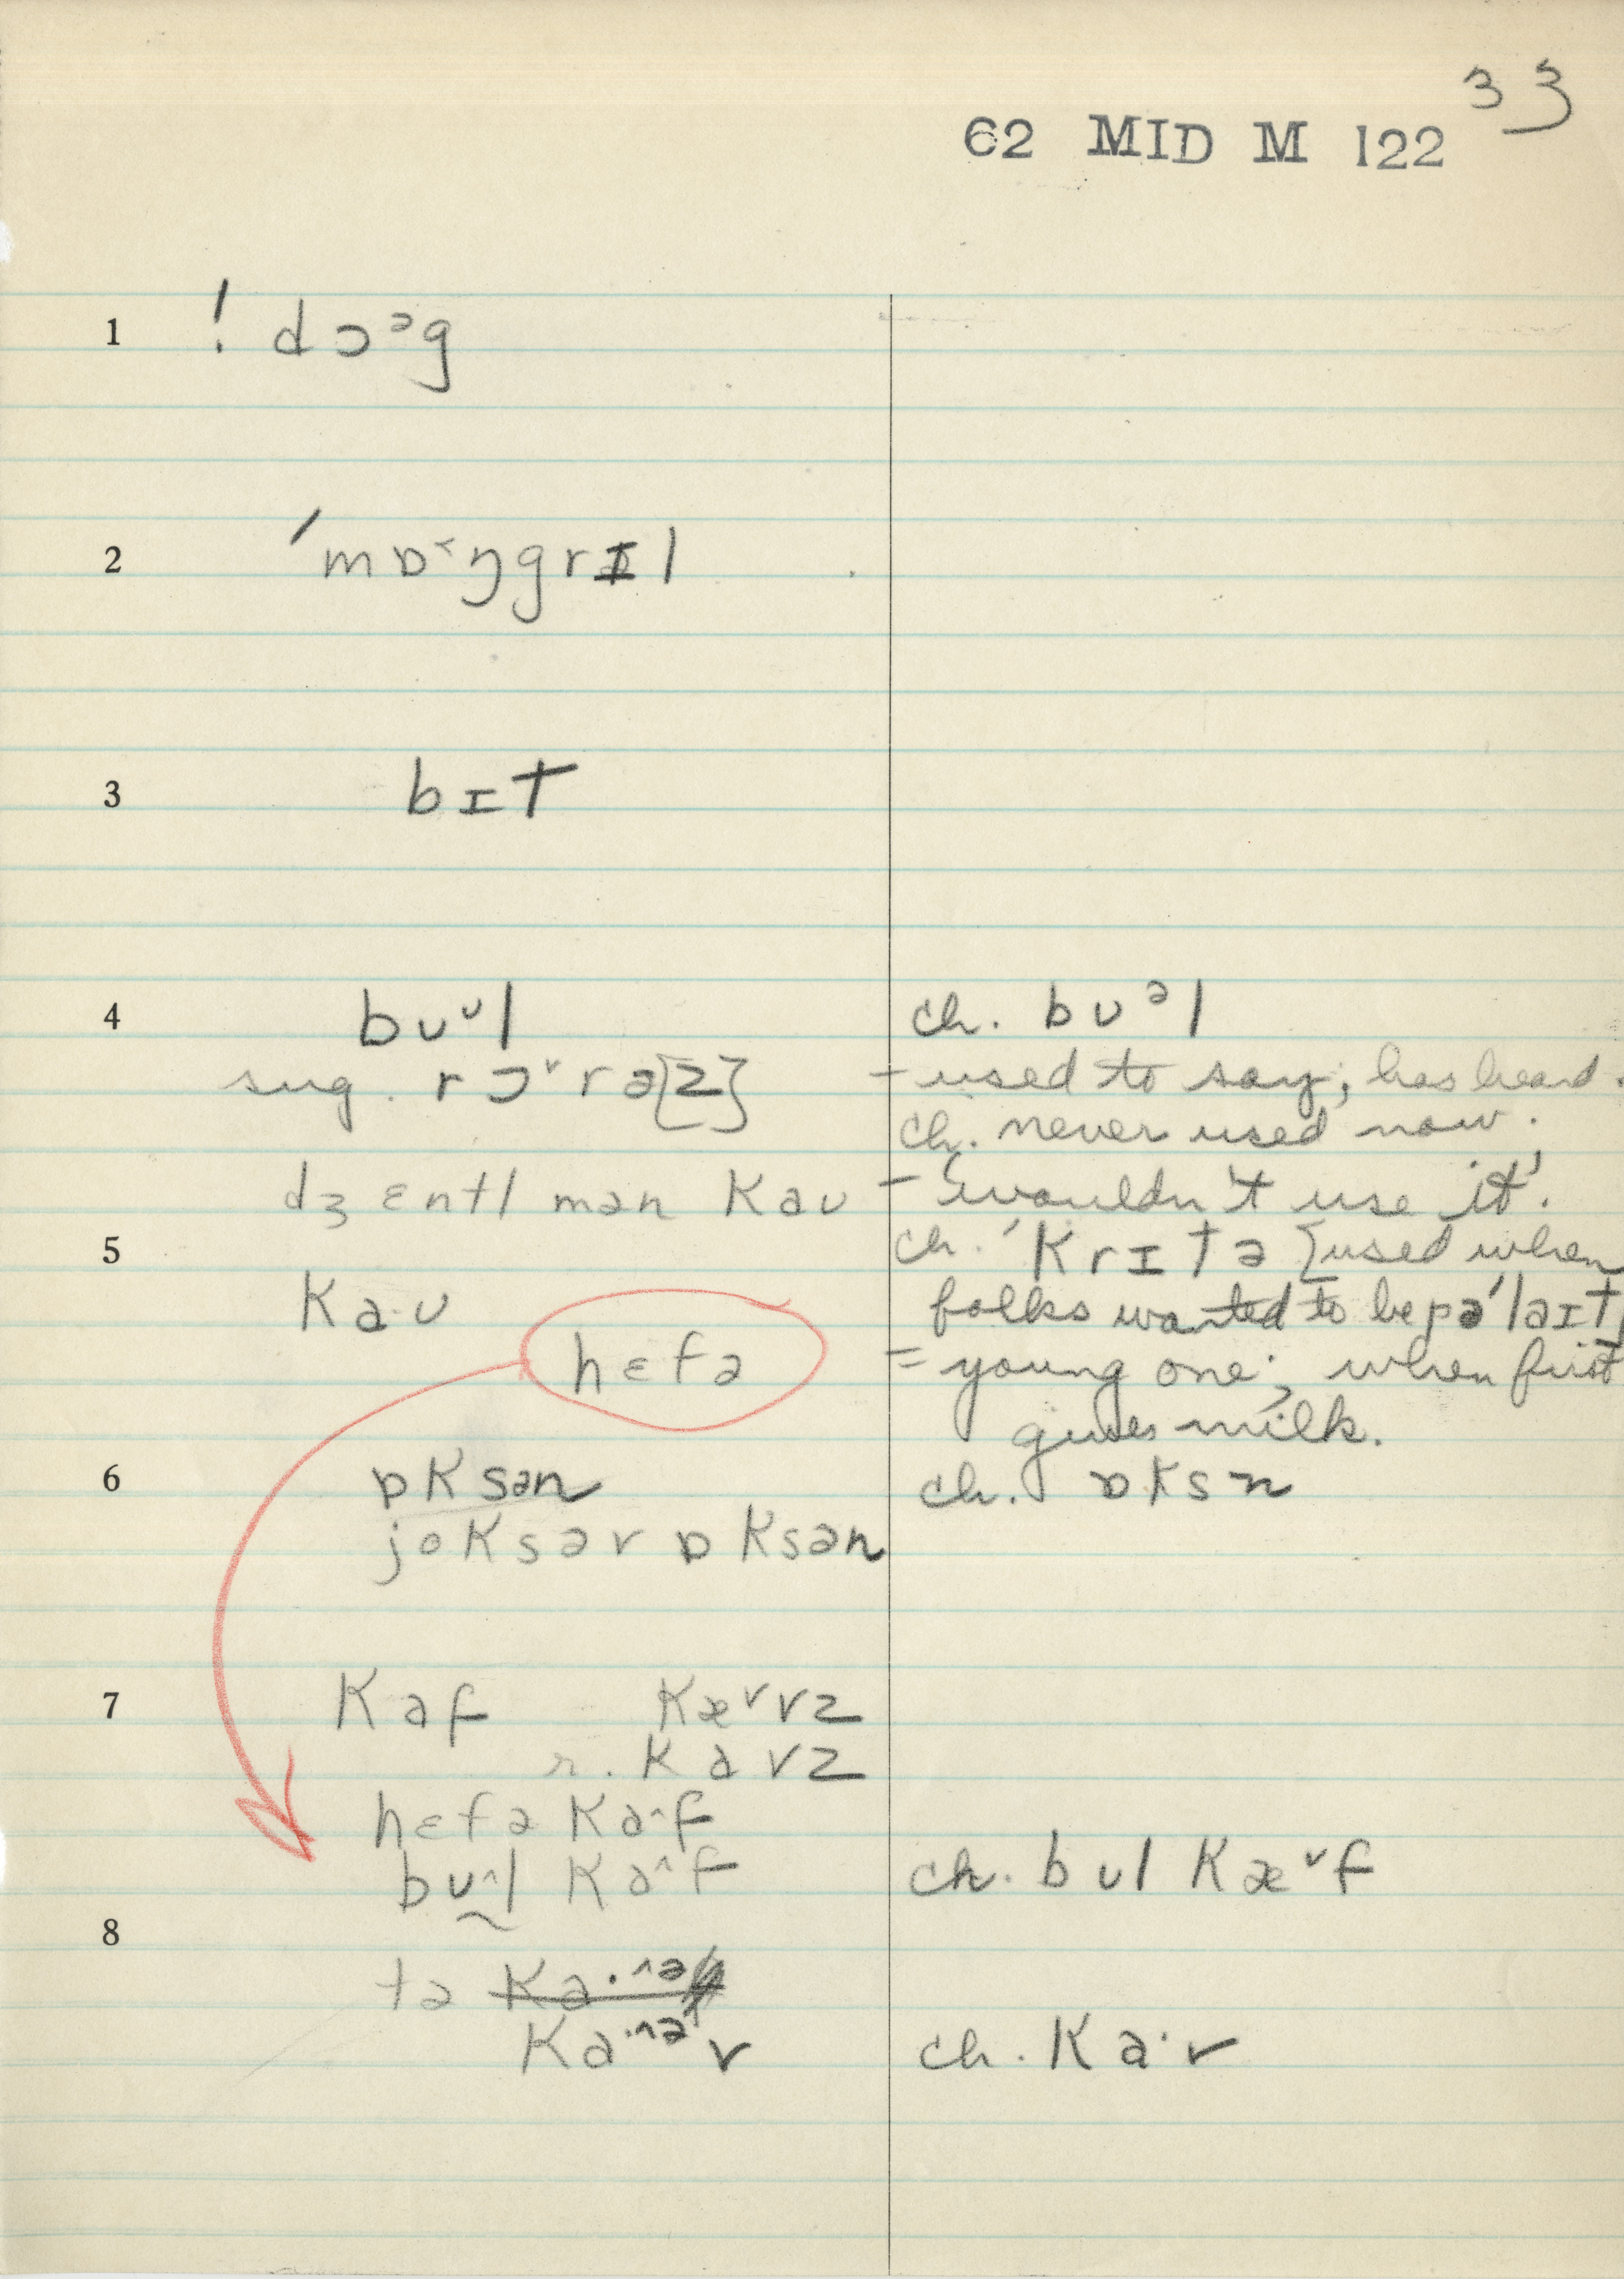 33
62 MID M 122
1 ! dɔᵊg
2 ˈmɒ˂ŋgrɪl
3 bɪt
4 bʊᵛl ch. bʊᵊl
sug. rɔ˅rə[z] – used to say, has heard.
ch. never used now.
dʒɛntlmən kaʊ – 'wouldn't use it'.
5 ch. ˈkrɪtə [used when
ka·ʊ folks wanted to be pəˈlaɪt]
hɛfə = young one; when first
gives milk.
6 ɒksən ch. ɒksn
joksər ɒksən
7 kaf kæ˅vz
r. kavz
hɛfə ka˄f
bʊ˄l ka˄f ch. bʊl kæ˅f
8
tə ka·˄ə
ka·˄ə v ch. ka·v